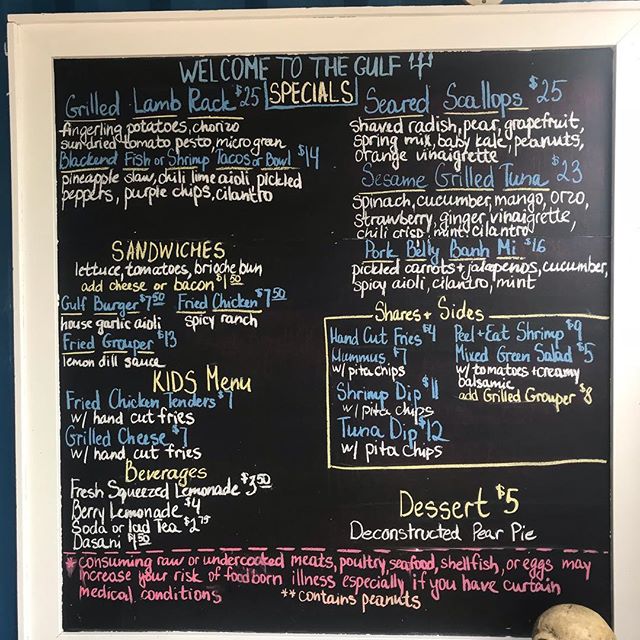 WELCOME TO THE GULF
SPECIALS
Grilled Lamb Rack $25
fingerling potatoes, chorizo
sundried tomato pesto, micro green
Blackend Fish or Shrimp Tacos or Bowl $14
pineapple slaw, chili lime aioli, pickled
peppers, purple chips, cilantro
Seared Scallops $25
shaved radish, pear, grapefruit,
spring mix, baby kale, peanuts,
orange vinaigrette
Sesame Grilled Tuna $23
spinach, cucumber, mango, orzo,
strawberry, ginger vinaigrette,
chili crisp, mint, cilantro
Pork Belly Banh Mi $16
pickled carrots + jalapenos, cucumber,
spicy aioli, cilantro, mint
SANDWICHES
lettuce, tomatoes, brioche bun
add cheese or bacon $1.50
Gulf Burger $7.50 Fried Chicken $7.50
house garlic aioli spicy ranch
Fried Grouper $13
lemon dill sauce
KIDS Menu
Fried Chicken Tenders $7
w/ hand cut fries
Grilled Cheese $7
w/ hand cut fries
Beverages
Fresh Squeezed Lemonade $3.50
Berry Lemonade $4
Soda or Iced Tea $2.75
Dasani $1.50
Shares + Sides
Hand Cut Fries $4
Hummus $7
w/ pita chips
Shrimp Dip $11
w/ pita chips
Tuna Dip $12
w/ pita chips
Peel + Eat Shrimp $9
Mixed Green Salad $5
w/ tomatoes + creamy
balsamic
add Grilled Grouper $8
Dessert $5
Deconstructed Pear Pie
* consuming raw or undercooked meats, poultry, seafood, shellfish, or eggs may
increase your risk of foodborn illness especially if you have curtain
medical conditions **contains peanuts